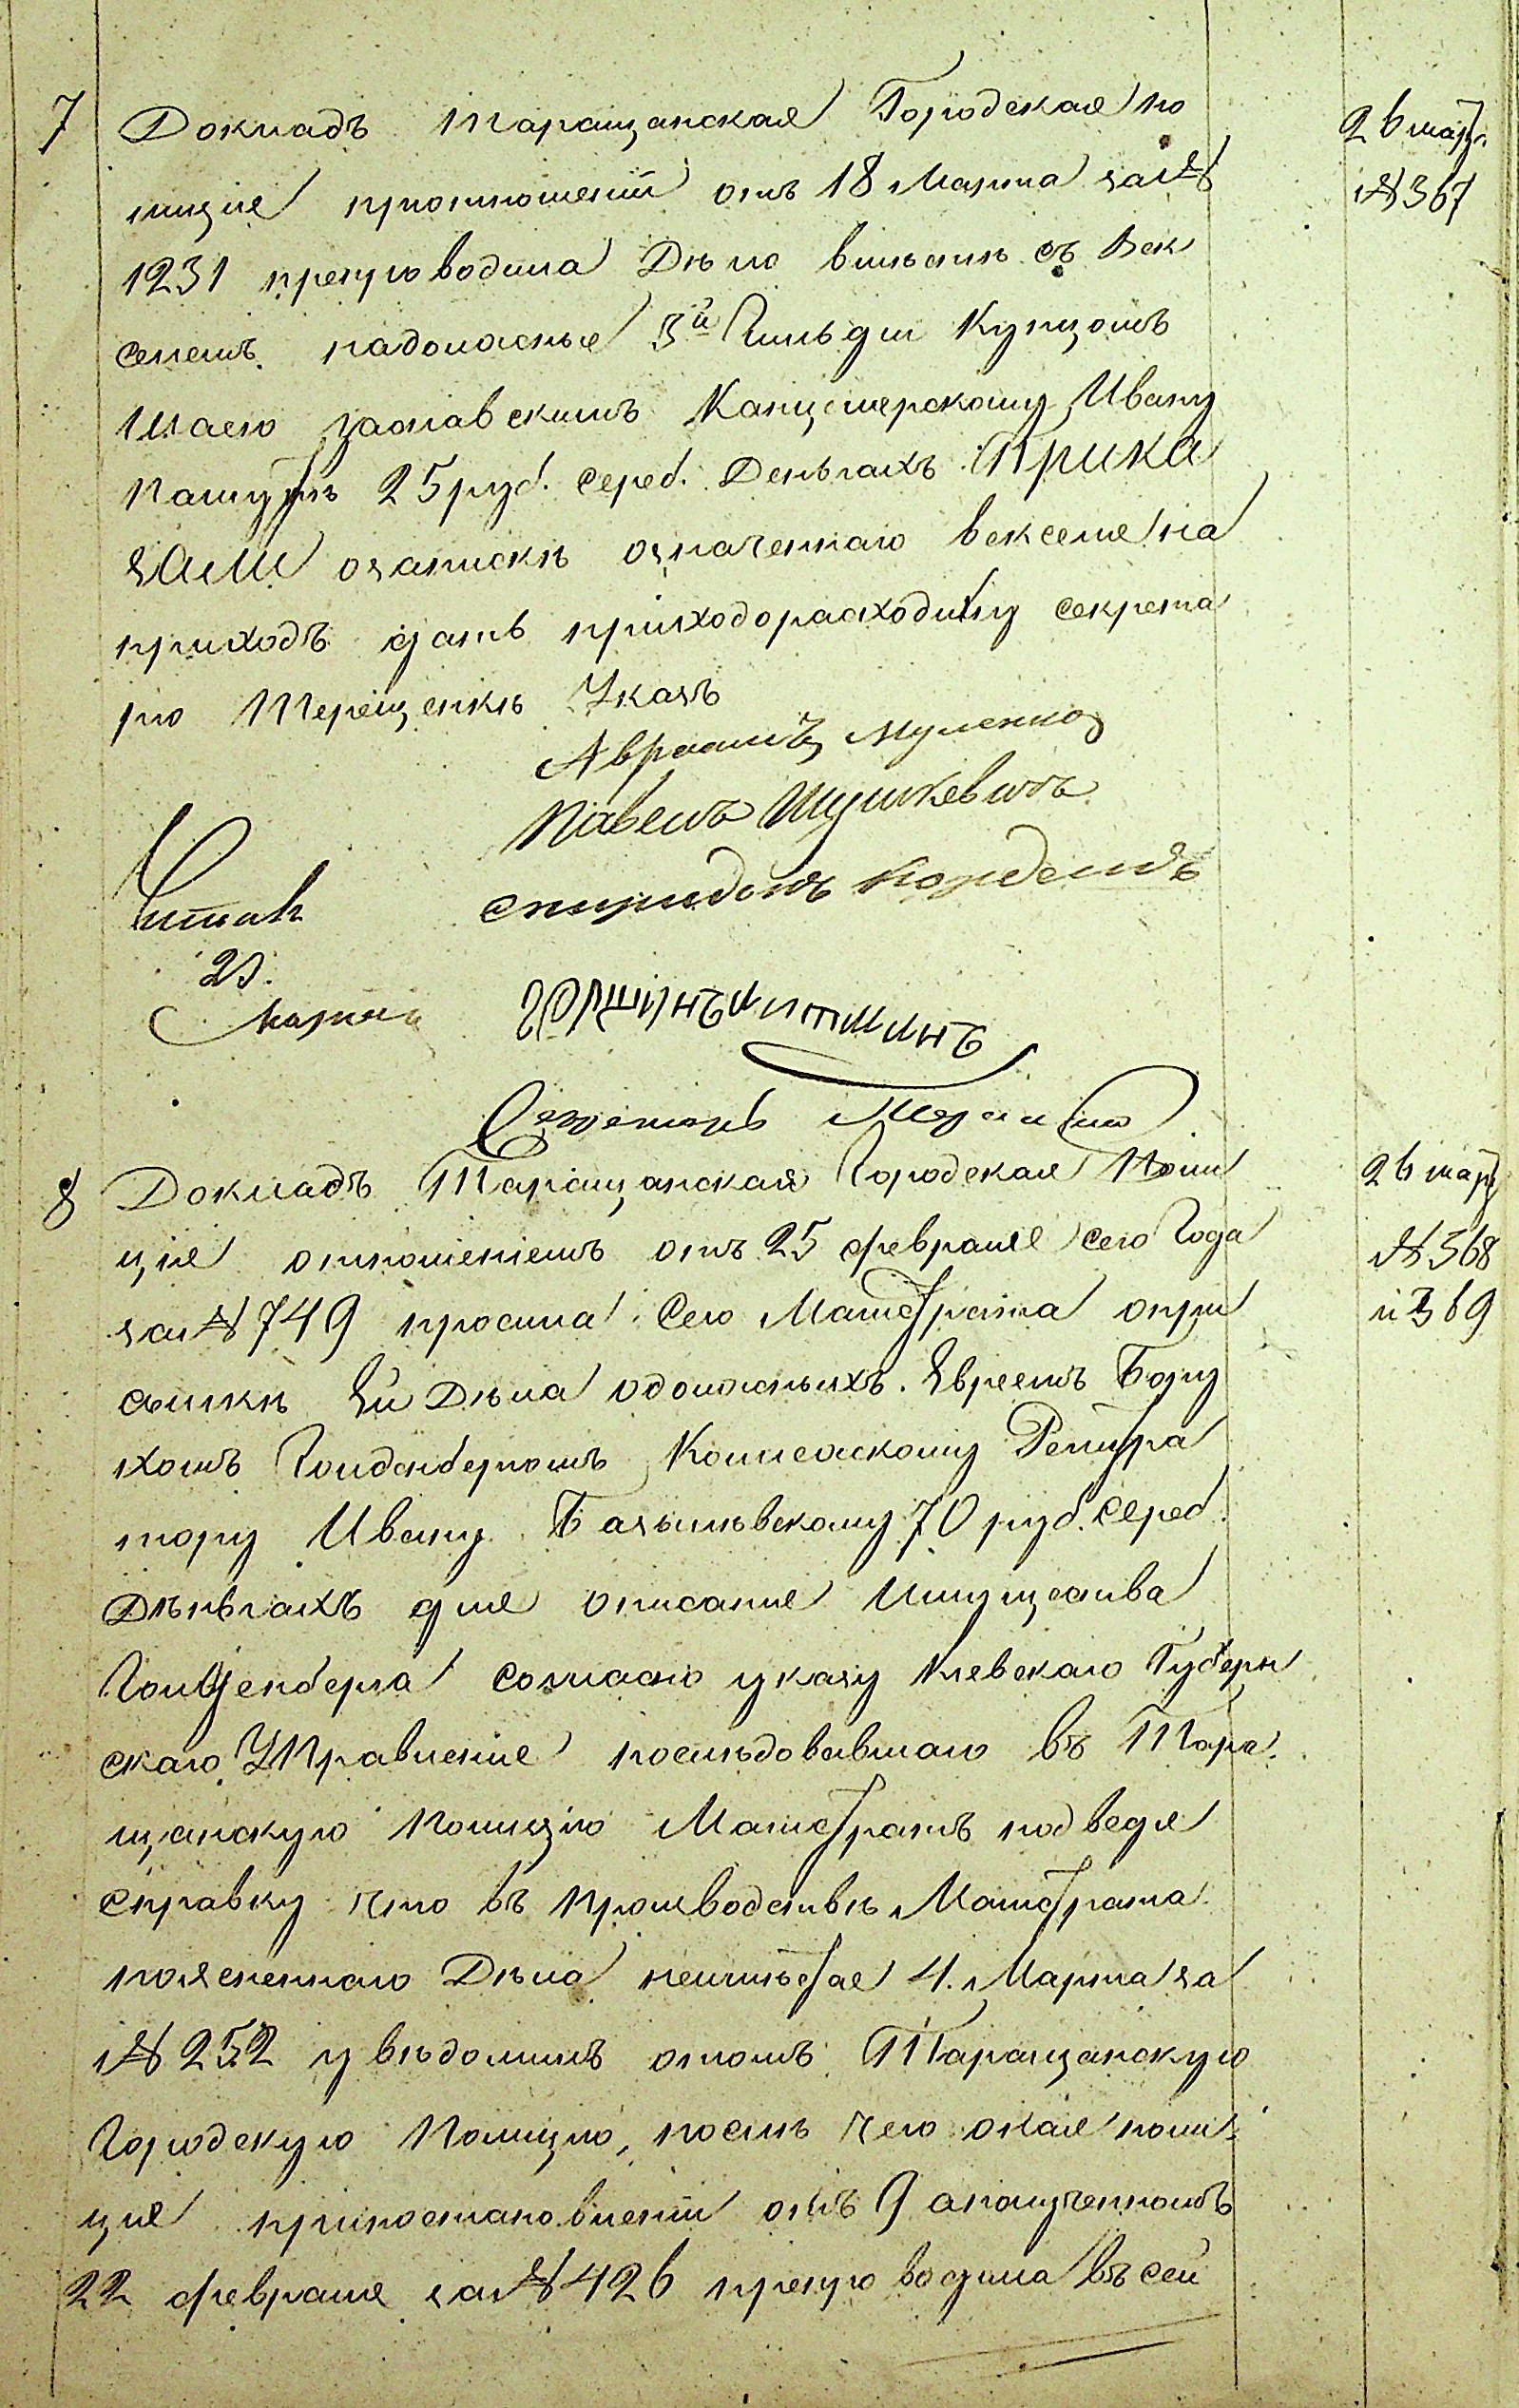 7
Докладъ Таращанская Городская по
лиція приотношеніи отъ 18 Марта за №
1231 препроводила Дѣло вмѣстѣ съ Век
селемъ надолжные 3й Гильдіи Купцомъ
Заславскимъ Канцелярскому Ивану
25 руб. сереб. Деньгахъ Прика
зали озапискѣ означеннаго векселя на
приходъ дать приходорасходчику секрета
рю Терещенкѣ Указъ
Авраамъ
Павелъ Шушкевичъ
Спиридонъ
Читалъ
Марта
Секретарь
26 март.
№ 367
8
Докладъ Таращанская Городская Поли
ція отношеніемъ отъ 25 февраля сего Года
за № 749 просила Сего Магистрата опри
сылкѣ Ей Дѣла одолжныхъ Евреемъ Бору
хомъ Голденбергомъ Колежскому Регистра
тору Ивану 70 руб. сереб.
Дѣньгахъ для описанія Имущества
Голденберга согласно указу Кіевскаго Губерн
скаго Правленія послѣдовавшаго въ Тара
щанскую Полицію Магистратъ подведя
справку что въ производствѣ Магистрата
поясненнаго Дѣла неимѣется 4. Марта за
№ 252 увѣдомилъ отомъ Таращанскую
Городскую Полицію, послѣ чего оная поли
ція припостановленіи отъ 9 аполученномъ
22 февраля за № 426 препроводила въ сей
26 март
№ 368
и 369